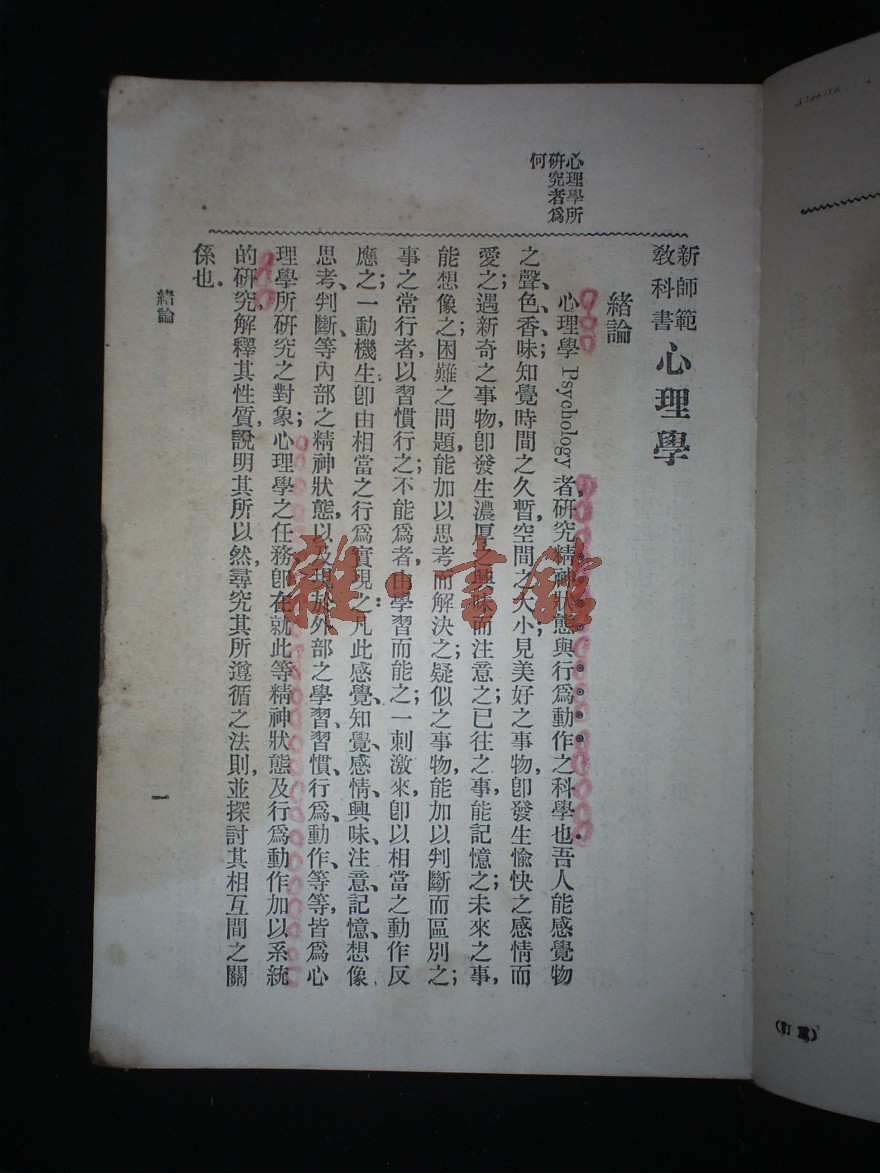 新師範
教科書
心理學
緒論
心理學所
研究者爲
何
心理學 Psychology 者，研究精神狀態與行爲動作之科學也．吾人能感覺物
之聲、色、香、味；知覺時間之久暫，空間之大小；見美好之事物，卽發生愉快之感情而
愛之；遇新奇之事物，卽發生濃厚之興味而注意之；已往之事，能記憶之；未來之事，
能想像之；困難之問題，能加以思考而解決之；疑似之事物，能加以判斷而區別之；
事之常行者，以習慣行之；不能爲者，由學習而能之；一刺激來，卽以相當之動作反
應之；一動機生，卽由相當之行爲實現之：凡此感覺、知覺、感情、興味、注意、記憶、想像、
思考、判斷、等內部之精神狀態，以及現於外部之學習、習慣、行爲、動作、等等，皆爲心
理學所研究之對象；心理學之任務，卽在就此等精神狀態及行爲動作加以系統
的研究，解釋其性質，說明其所以然，尋究其所遵循之法則，並探討其相互間之關
係也．
緒論
一
雜·書館